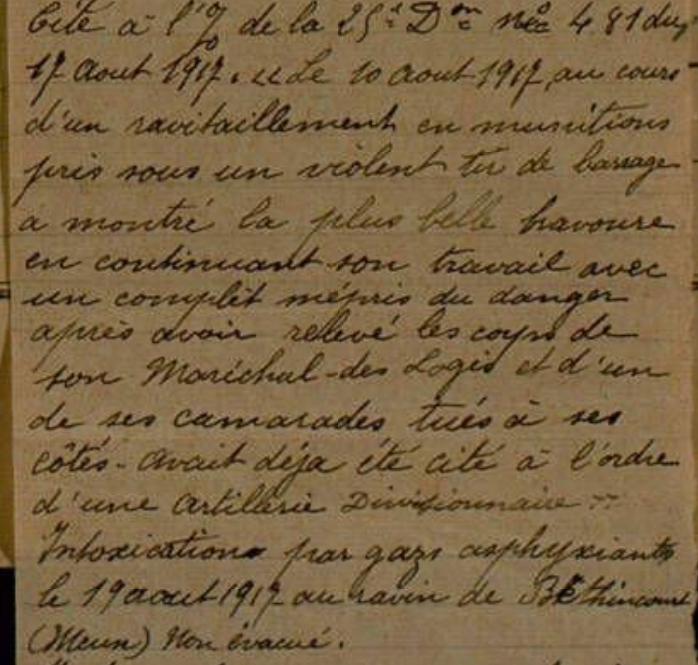 Cité à l'O/ de la 25e Don no 481 du
17 Aout 1917. "Le 10 aout 1917, au cours
d'un ravitaillement en munitions
pris sous un violent tir de barrage
a montré la plus belle bravoure
en continuant son travail avec
un complet mépris du danger
après avoir relevé les corps de
son Maréchal-des Logis et d'un
de ses camarades tués à ses
côtés - avait déja été cité à l'ordre
d'une Artillerie Divisionnaire "
Intoxications par gazs asphyxiants
le 19 aout 1917 au ravin de Béthincourt
(Meuse) Non évacué.